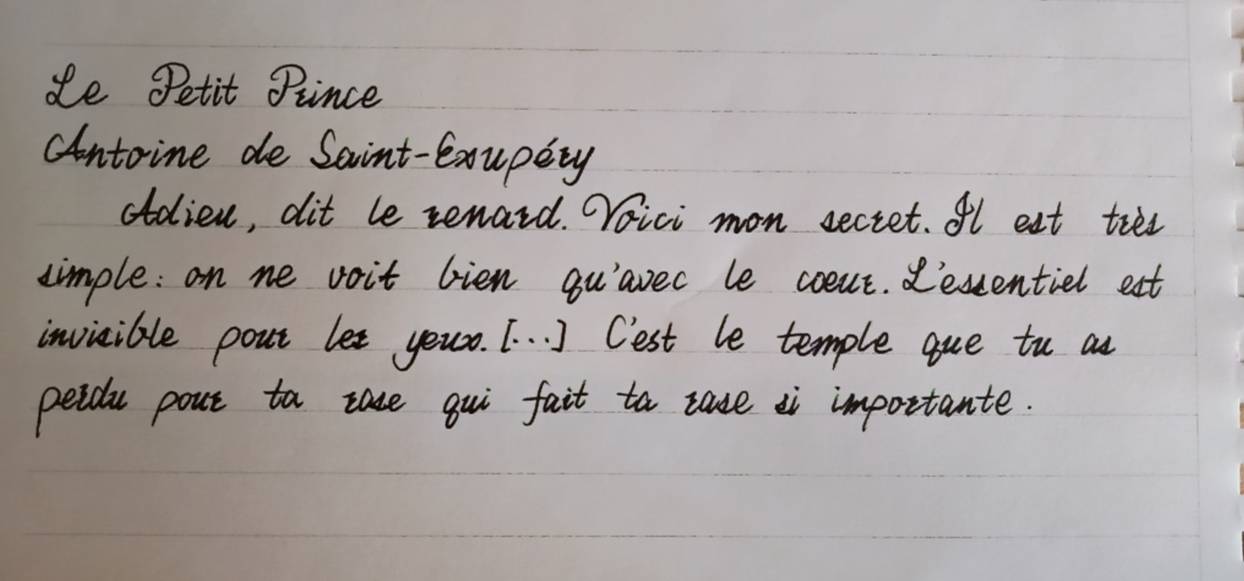 Le Petit Prince
Antoine de Saint-Exupéry
Adieu, dit le renard. Voici mon secret. Il est très
simple: on ne voit bien qu'avec le coeur. L'essentiel est
invisible pour les yeux. [...] C'est le temple que tu as
perdu pour ta rose qui fait ta rose si importante.